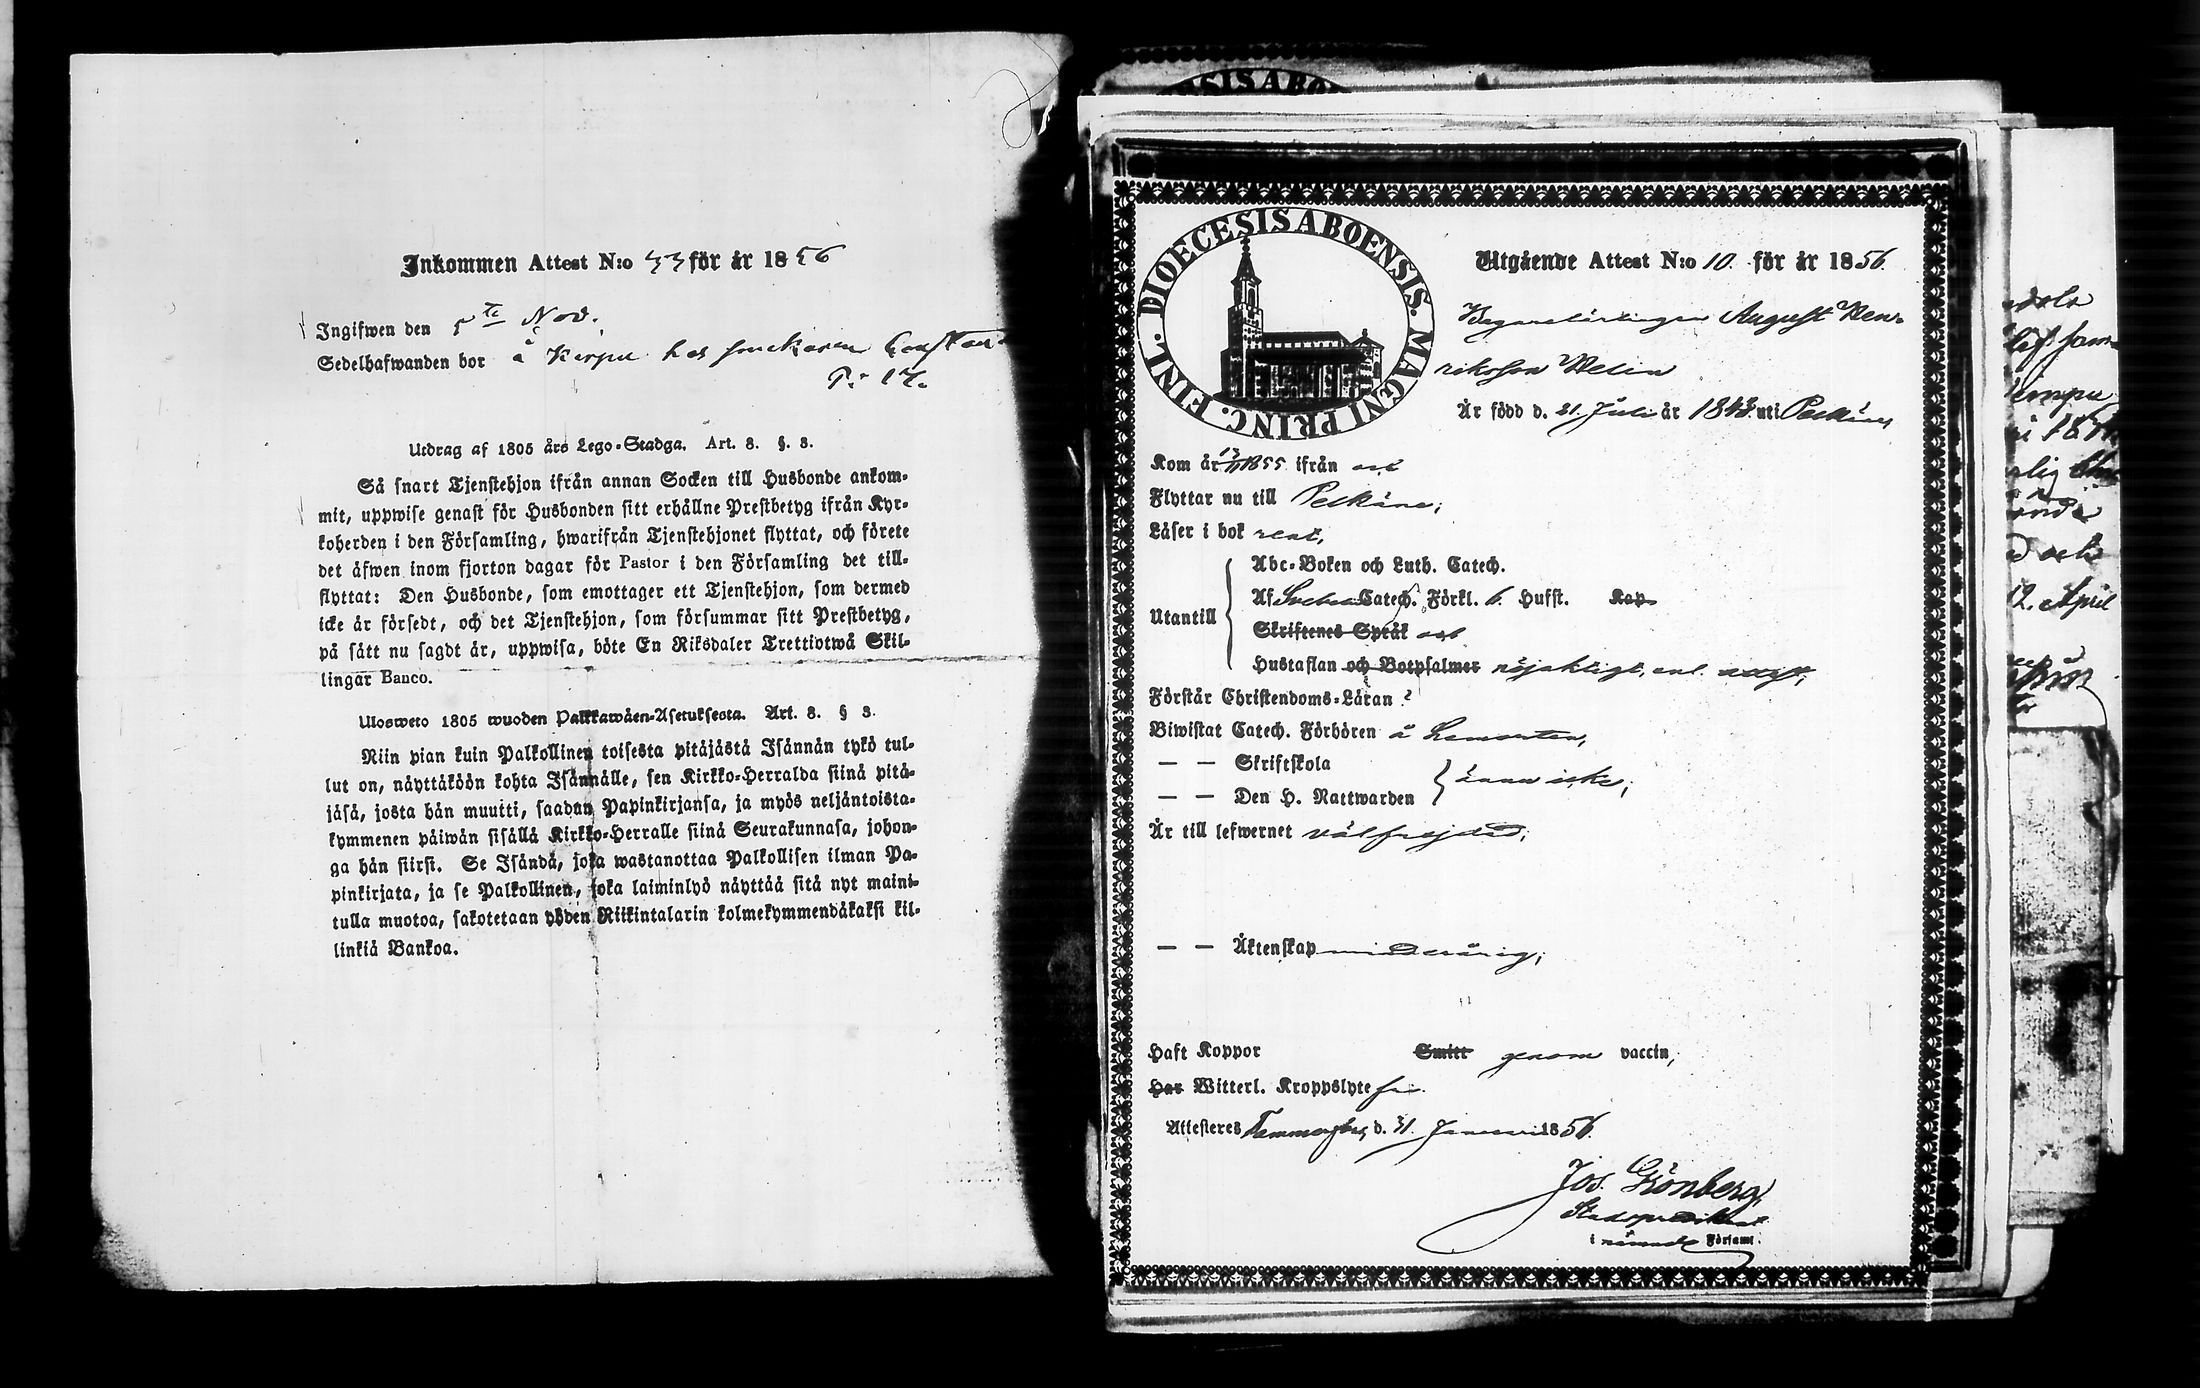 Inkommen Attest N:o 33 för år 1856
Ingifwen den 5te Nov.
Sedelhafwanden bor å Kirpu hos
P: 17.
Utdrag af 1805 års Lego-Stadga. Art. 8. §. 3.
Så snart Tjenstehjon ifrån annan Socken till Husbonde ankom-
mit, uppwise genast för Husbonden sitt erhållne Prestbetyg ifrån Kyr-
koherden i den Församling, hwarifrån Tjenstehjonet flyttat, och förete
det äfwen inom fjorton dagar för Pastor i den Församling det till-
flyttat: Den Husbonde, som emottager ett Tjenstehjon, som dermed
icke är försedt, och det Tjenstehjon, som försummar sitt Prestbetyg,
på sätt nu sagdt är, uppwisa, böte En Riksdaler Trettiotwå Skil-
lingar Banco.
Ulosweto 1805 wuoden Palkkawäen-Asetuksesta. Art. 8. § 3.
Niin pian kuin Palkollinen toisesta pitäjästä Isännän tykö tul-
lut on, näyttäköön kohta Isännälle, sen Kirkko-Herralda siinä pitä-
jäsä, josta hän muutti, saadun Papinkirjansa, ja myös neljäntoista-
kymmenen päiwän sisällä Kirkko-Herralle siinä Seurakunnasa, johon-
ga hän siirsi. Se Isändä, joka wastanottaa Palkollisen ilman Pa-
pinkirjata, ja se Palkollinen, joka laiminlyö näyttää sitä nyt maini-
tulla muotoa, sakotetaan yhden Riikintalarin kolmekymmendäkaksi kil-
linkiä Bankoa.
DIOECESIS ABOENSIS. MAGNI PRINC. FINL.
Utgående Attest N:o 10. för år 1856.
August Hen-
rikssson Welin
Är född d. 21. Juli år 1843 uti Pelkäne,
Kom år 1855 ifrån
Flyttar nu till Pelkäne;
Läser i bok rent,
Abc-Boken och Luth. Catech.
Utantill
Af Svebel. Catech. Förkl. 6. Hufst. Kap.
Skriftenes Språk
Hustaflan och Botpsalmer nöjaktigt, enl.
Förstår Christendoms-Läran
Biwistat Catech. Förhören å
— — Skriftskola
ännu icke;
— — Den H. Nattwarden
Är till lefwernet välfrejdad;
— — Äktenskap minderårig;
Haft Koppor Smitt genom vaccin,
Har Witterl. Kroppslyte
Attesteres Tammerfors, d. 31. Januari 1856.
Jos. Grönberg,
Stadspredikant
i nämnde Församl.
12. April